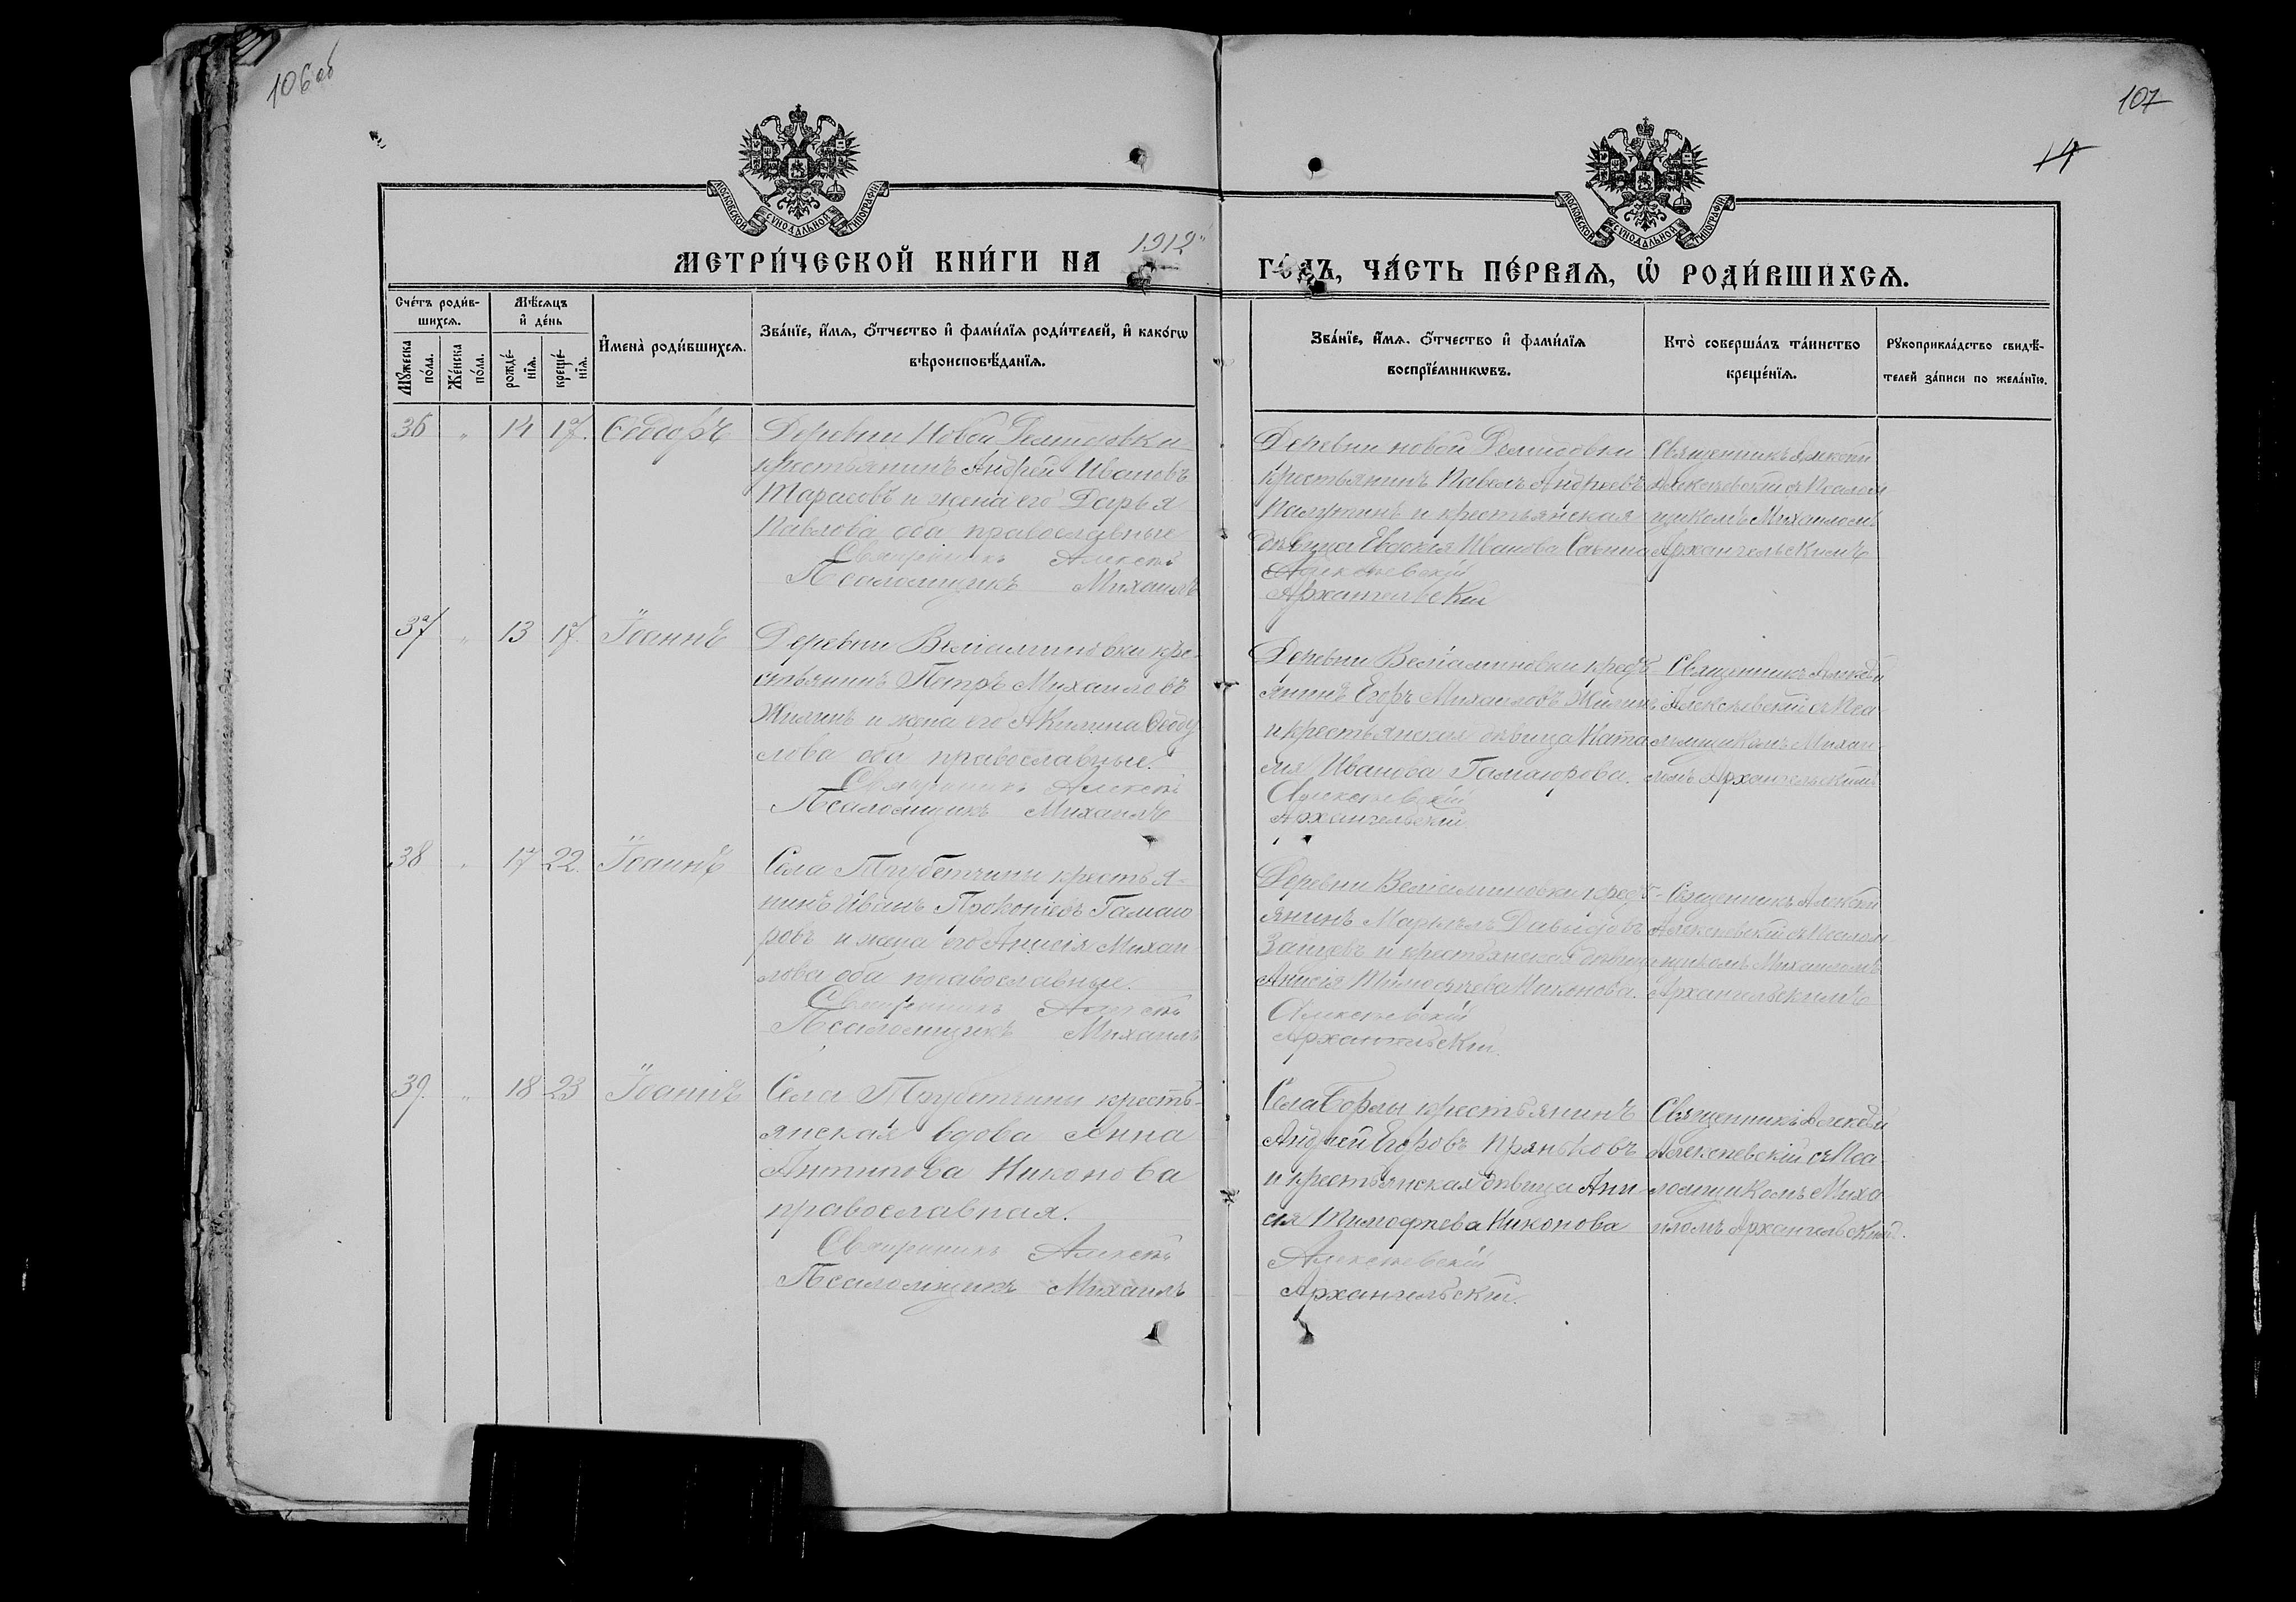 106 об
107
14
МОСКОВСКОЙ СѴНОДАЛЬНОЙ ТИПОГРАФІИ
МОСКОВСКОЙ СѴНОДАЛЬНОЙ ТИПОГРАФІИ
МЕТРИ́ЧЕСКОЙ КНИ́ГИ НА 1912
ГО́ДЪ, ЧА́СТЬ ПЕ́РВАѦ, Ѡ҆ РОДИ́ВШИХСѦ.
Сче́тъ роди́в-
шихсѧ.
Мѣ́сѧцъ
и҆ де́нь
Мꙋ́жеска по́ла.
Же́нска по́ла.
рожде́-нїѧ.
креще́-нїѧ.
И҆мена̀ роди́вшихсѧ.
Зва́нїе, и҆́мѧ, ѻ҆́тчество и҆ фами́лїѧ роди́телей, и҆ како́гѡ
вѣроисповѣ́данїѧ.
Зва́нїе, и҆́мѧ, ѻ҆́тчество и҆ фами́лїѧ
воспрїе́мникѡвъ.
Кто̀ соверша́лъ та́инство
креще́нїѧ.
Рꙋкоприкла́дство свидѣ́-
телей за́писи по жела́нїю.
36 " 14 17. Ѳеодоръ
Деревни Новой Демидовки
крестьянинъ Андрей Ивановъ
Тарасовъ и жена его Дарья
Павлова оба православные
Священникъ Алексѣй
Псаломщикъ Михаилъ
Деревни новой Демидовки
крестьянинъ Павелъ Андреевъ
и крестьянская
дѣвица Евдокія Иванова Савина
Алексѣевскій
Архангельскій
Священникъ Алексѣй
Алексѣевскій съ Псалом
щикомъ Михаиломъ
Архангельскимъ
37 " 13 17. Іоаннъ
Деревни Веліаминовки кре-
стьянинъ Петръ Михаиловъ
Жилинъ и жена его Акилина Ѳеоду
лова оба православные.
Священникъ Алексѣй
Псаломщикъ Михаилъ
Деревни Веліаминовки крест-
янинъ Егоръ Михаиловъ Жилинъ
и крестьянская дѣвица Ната
лія Иванова Гамаюрова.
Алексѣевскій
Архангельскій
Священникъ Алексѣй
Алексѣевскій съ Пса
ломщикомъ Михаи
ломъ Архангельскимъ
38 " 17 22. Іоаннъ
Села Трубетчины крестья-
нинъ Иванъ Прокопіевъ Гамаю
ровъ и жена его Анисія Михаи
лова оба православные.
Священникъ Алексѣй
Псаломщикъ Михаилъ
Деревни Веліаминовки крест-
янинъ Давыдовъ
Зайцевъ и крестьянска дѣвица
Анисія Тимофѣева Никонова.
Алексѣевскій
Архангельскій.
Священникъ Алексѣй
Алексѣевскій съ Псалом
щикомъ Михаиломъ
Архангельскимъ
39. " 18 23 Іоаннъ
Села Трубетчины кресть-
янская вдова Анна
Антипова Никонова
православная.
Священникъ Алексѣй
Псаломщикъ Михаилъ
Села крестьянинъ
Андрей Егоровъ Пряньковъ
и крестьянская дѣвица Ани
сія Тимофѣева Никонова
Алексѣевскій
Архангельскій.
Священникъ Алексѣй
Алексѣевскій съ Пса
ломщикомъ Миха
иломъ Архангельским.